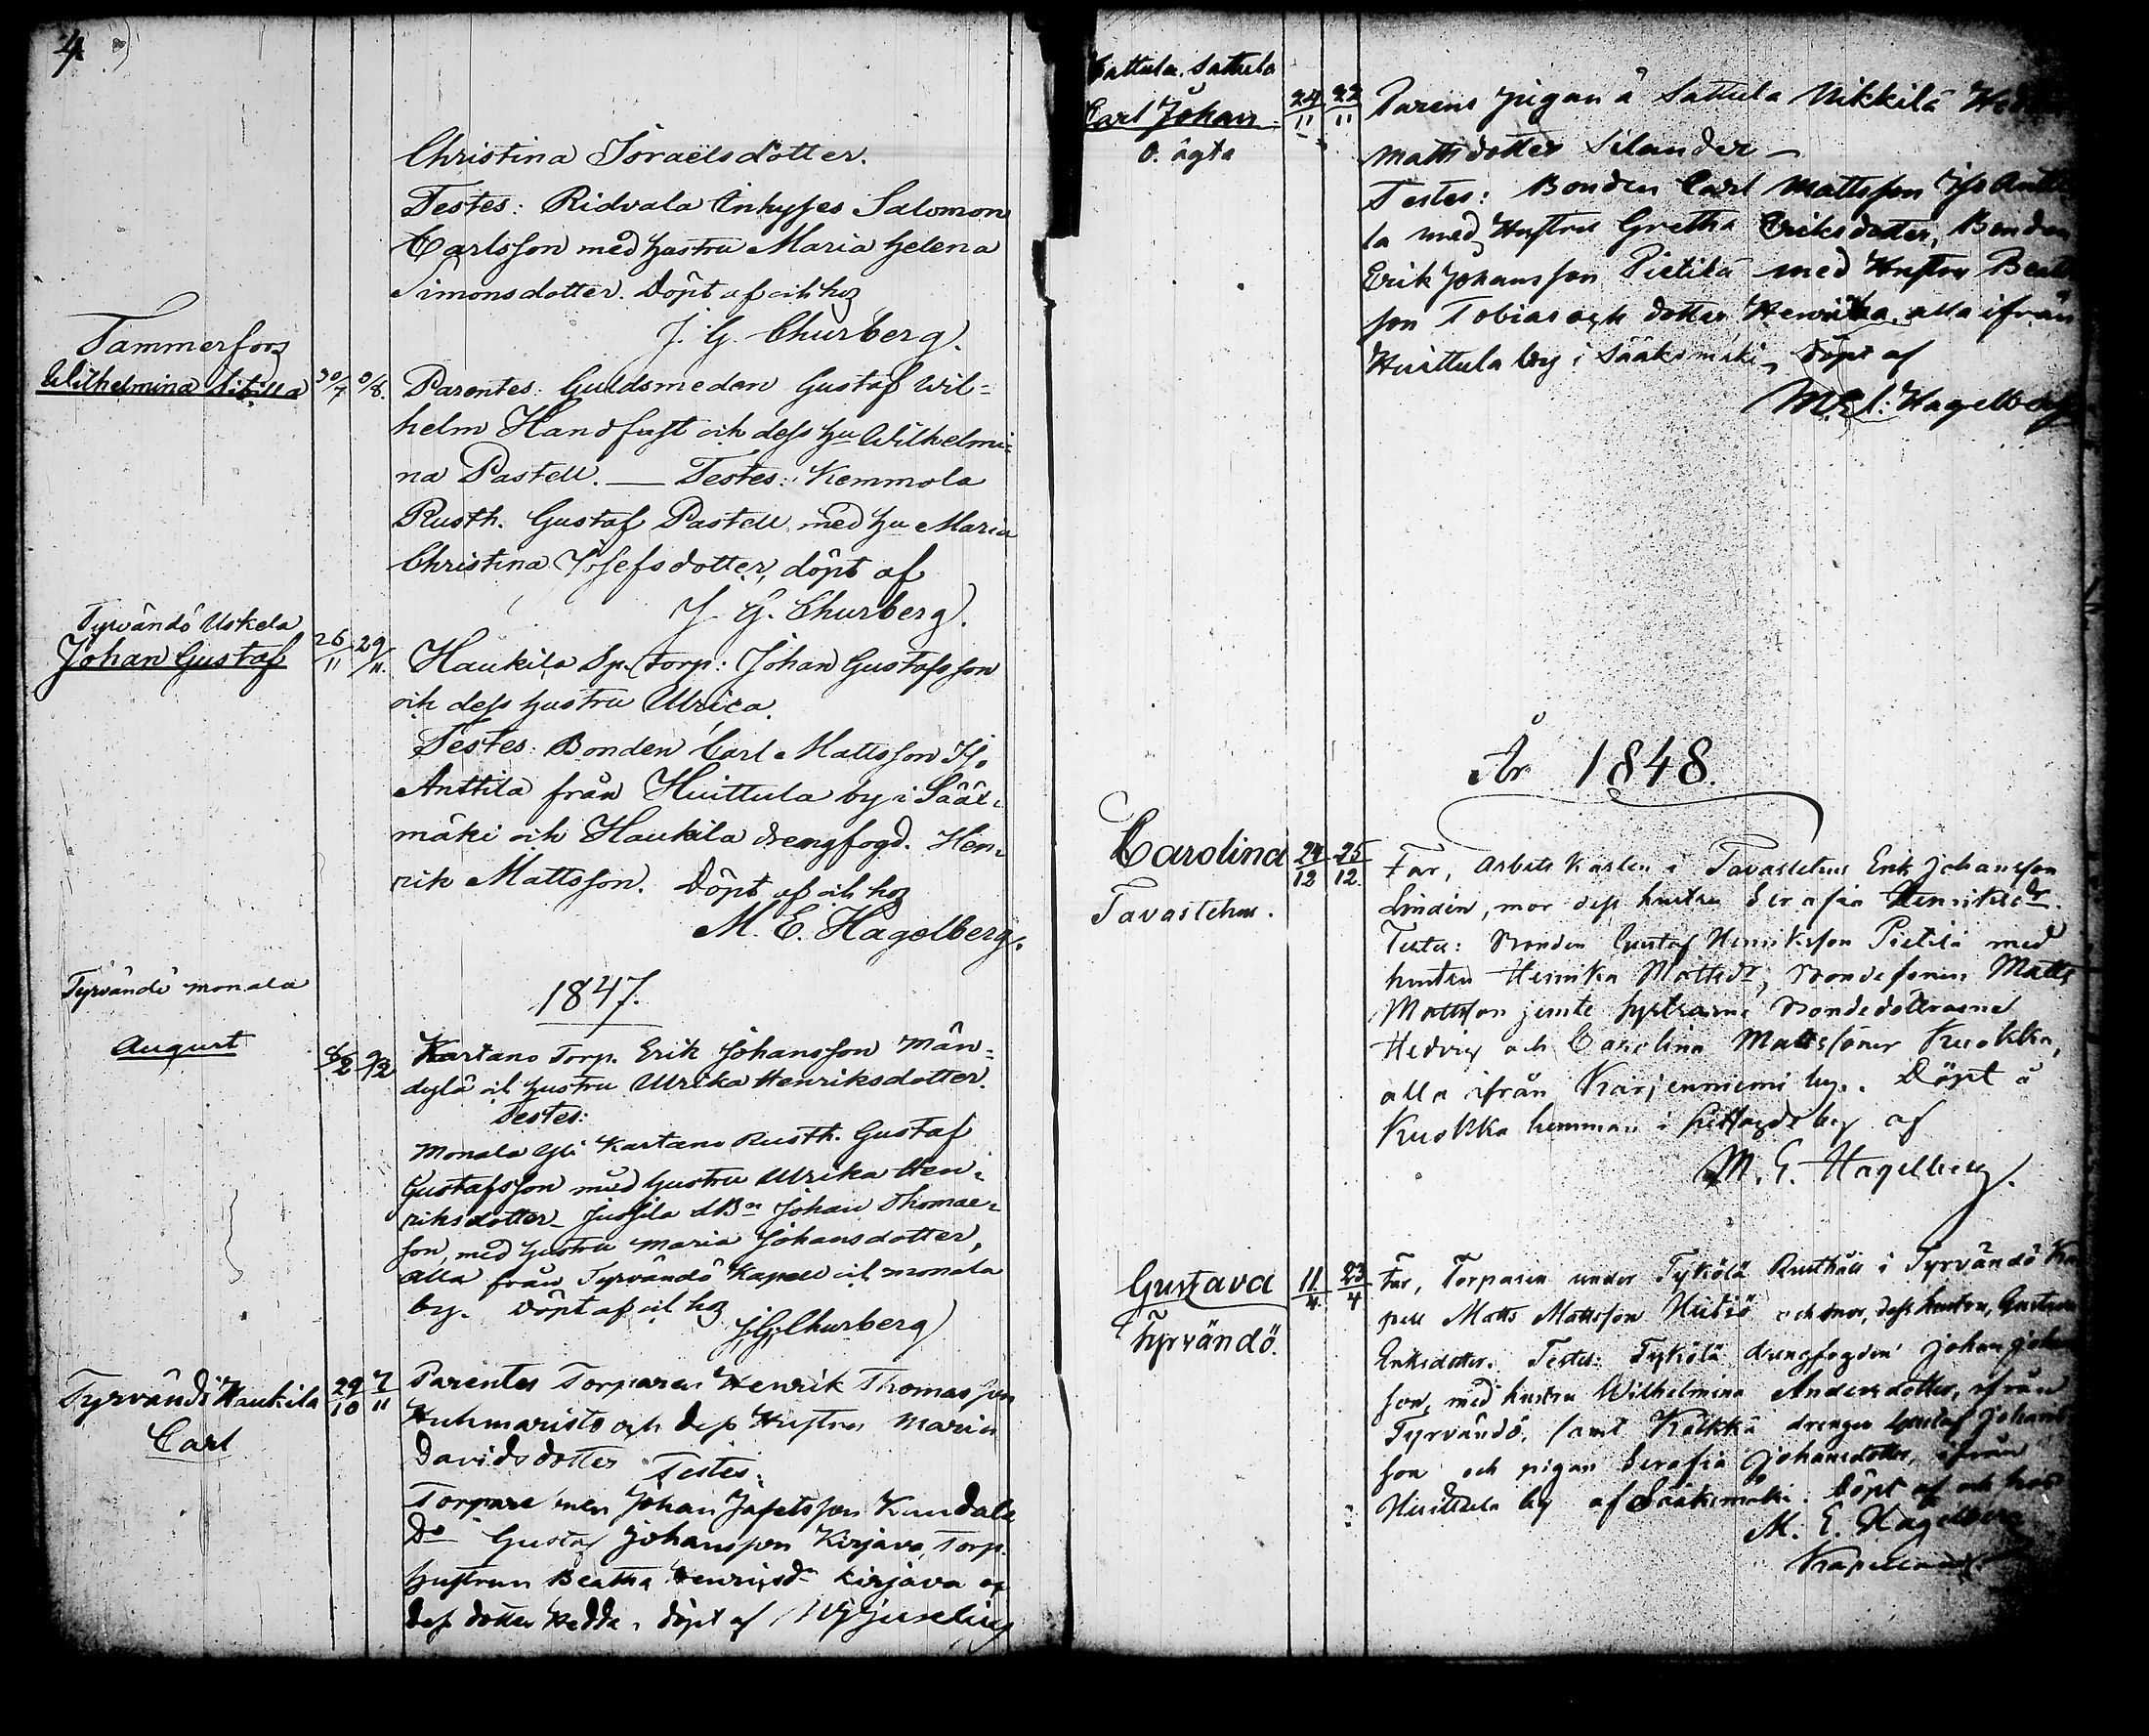 4
Christina Israelsdotter.
Testes: Ridvala Inhyses Salomon
Carlsson med hustru Maria Helena
Simonsdotter. Döpt af och hoz
J. G. Churberg.
Tammerfors
Wilhelmina 30/7 /8. Parentes: Guldsmeden Gustaf Wil-
helm Handfast och dess hu Wilhelmi-
na Pastell. — Testes: Kemmola
Rusth. Gustaf Pastell med hu Maria
Christina Josefsdotter, döpt af
J. G. Churberg.
Tyrvändö Uskela
Johan Gustaf 26/11 29/11. Haukila Sp. torp: Johan Gustafsson
och dess hustru Ulrica.
Testes: Bonden Carl Mattsson
Anttila från Huittula by i Sääx-
mäki och Haukila drengfogd. Hen-
rik Mattsson. Döpt af och hoz
M. E. Hagelberg.
1847.
Tyrvändö Monala
August 8/2 9/2 Kartano Torp. Erik Johansson Män-
dylä och hustru Ulrika Henriksdotter.
Testes:
Monala Kartano Rusth. Gustaf
Gustafsson med hustru Ulrika Hen-
riksdotter – Jussila Johan Thomas-
son, med hustru Maria Johansdotter,
alla från Tyrvändö Kapell och Monala
by. Döpt af och hoz
J. G. Churberg
Tyrvändö Haukila 29/10 7/11 Parentes Torparen Henrik Thomasson
Carl Huhmaristo och dess Hustru Maria
Davidsdotter Testes:
Torpare Johan Japetsson
Do Gustaf Johansson Kirjava, Torp.
hustrun Beatha Henrigsdr Kirjava
dess dotter Hedda, döpt af
Sattula
Carl Johan 24/11 22/11 Parens pigan å Sattula Nikkilä
O. ägta Mattsdotter Silander –
Testes: Bonden Carl Mattsson Antti
la med Hustru Gretha Eriksdotter, Bonden
Erik Johansson Pietilä med Hustru
son Tobias och dotter Henrika, alla ifrån
Huittula by i Sääksmäki, döpt af
Hagelberg
År 1848.
Carolina 24/12 25/12. Far, Arbets Karlen i Tavastehus Erik Johansson
Tavastehus. Lindén, mor dess hustru Serafia
Testes: Bonden Gustaf Henriksson Pietilä med
hustru Henrika Mattsdr, Bondesonen Matts
Mattsson jemte systrarne Bondedöttrarna
Hedvig och Carolina Mattssöner Kuokka,
alla ifrån Kärjenniemi by. Döpt å
Kuokka hemman i by af
M. E. Hagelberg.
Gustava 11/4 23/4 Far, Torparen under Tykölä Rusthåll i Tyrvändö Ka
Tyrvändö. pell Matts Mattsson och mor, dess hustru,
Eriksdotter. Testes: Tykölä drengfogden Johan
son, med hustru Wilhelmina Andersdotter, ifrån
Tyrvändö, samt drengen Gustaf Johans
son och pigan Serafia Johansdotter, ifrån
Huittula by af Sääksmäki. Döpt af och hos
M. E. Hagelberg